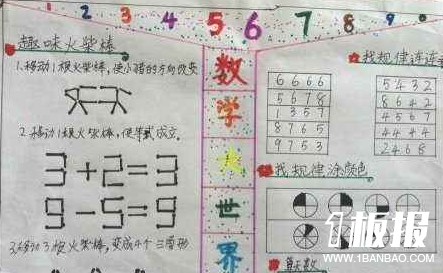 1 2 3 4 5 6 7 8 9
数学大世界
趣味火柴棒
1.移动1根火柴棒,使小猪的方向改变
2.移动1根火柴棒,使等式成立.
3+2=3
9-5=9
3.移动3根火柴棒,变成4个三角形
找规律连连看
6 6 6 6
5 6 7 8
1 3 5 7
8 7 6 5
9 7 5 3
5 4 3 2
8 6 4 2
4 5 6 7
4 4 4 4
2 4 6 8
找规律涂颜色
1板报
WWW.1BANBAO.COM